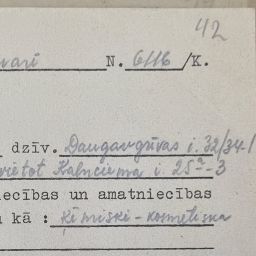 42
vari N. 6116 /K.
dzīv. Daugavgrīvas i. 32/34
vietot Kalnciema i. 25ª-3
ecības un amatniecības
kā : Ķīmiski-kosmētiska